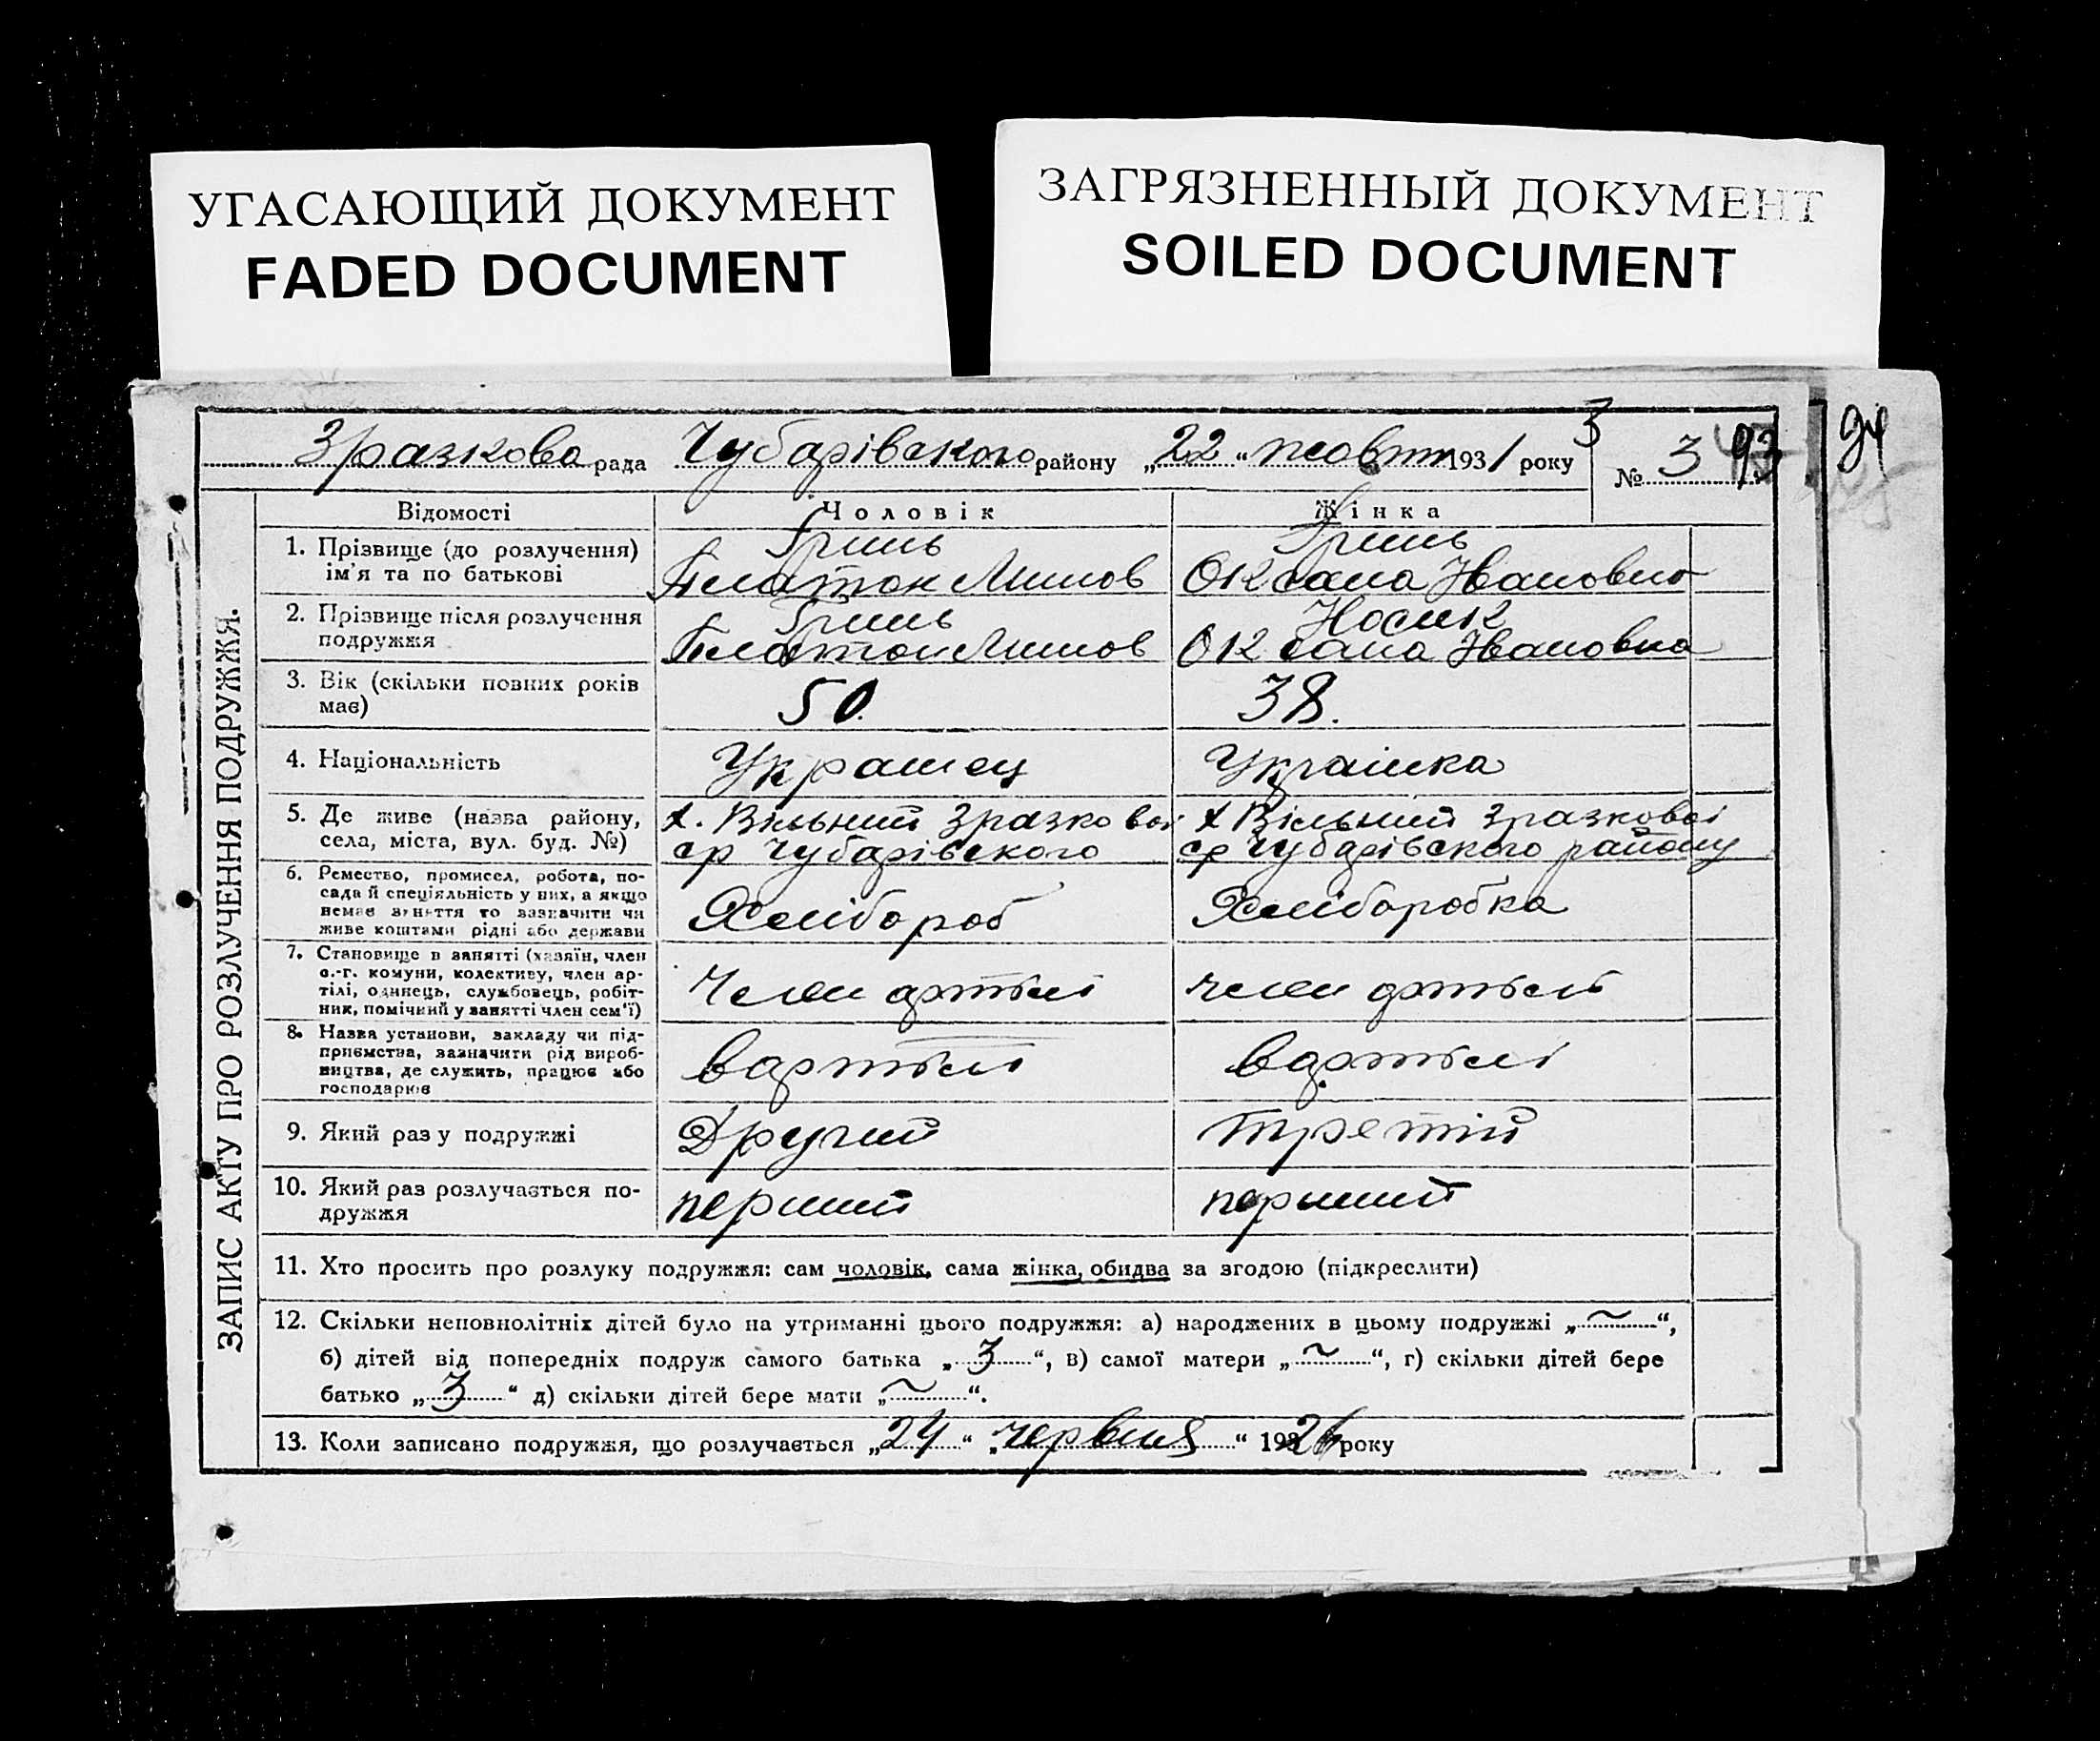 УГАСАЮЩИЙ ДОКУМЕНТ
FADED DOCUMENT
ЗАГРЯЗНЕННЫЙ ДОКУМЕНТ
SOILED DOCUMENT
Зразкова рада Чубарівського району „22“ жовтн 1931 року
3
№ 3 93
94
ЗАПИС АКТУ ПРО РОЗЛУЧЕННЯ ПОДРУЖЖЯ.
Відомості Чоловік Жінка
1. Прізвище (до розлучення) ім'я та по батькові
Гринь
Платон Минов
Гринь
Оксана Івановно
2. Прізвище після розлучення подружжя
Гринь
Платон Минов
Носик
Оксана Івановна
3. Вік (скільки повних років має)
50.
38.
4. Національність
Украінец
Украінка
5. Де живе (назва району, села, міста, вул. буд. №)
х. Вільний Зразковоі
ср Чубарівского
х Вільний Зразковоі
ср Чубарівского району
6. Ремество, промисел, робота, по-
сада й спеціяльність у них, а якщо
немає заняття то зазначити чи
живе коштами рідні або держави
Хлібороб
Хліборобка
7. Становище в занятті (хазяїн, член
с.-г. комуни, колективу, член ар-
тілі, одинець, службовець, робіт-
ник, помічний у занятті член сем'ї)
Член артьлі
член артьль
8. Назва установи, закладу чи під-
приємства, зазначити рід вироб-
ництва, де служить, працює або
господарює
вартьлі
вартьлі
9. Який раз у подружжі
Другий
третій
10. Який раз розлучається по-
дружжя
перший
перший
11. Хто просить про розлуку подружжя: сам чоловік, сама жінка, обидва за згодою (підкреслити)
12. Скільки неповнолітніх дітей було на утриманні цього подружжя: а) народжених в цьому подружжі „~“,
б) дітей від попередніх подруж самого батька „3“, в) самої матери „~“, г) скільки дітей бере
батько „3“ д) скільки дітей бере мати „~“.
13. Коли записано подружжя, що розлучається „24“ „червня“ 1926 року